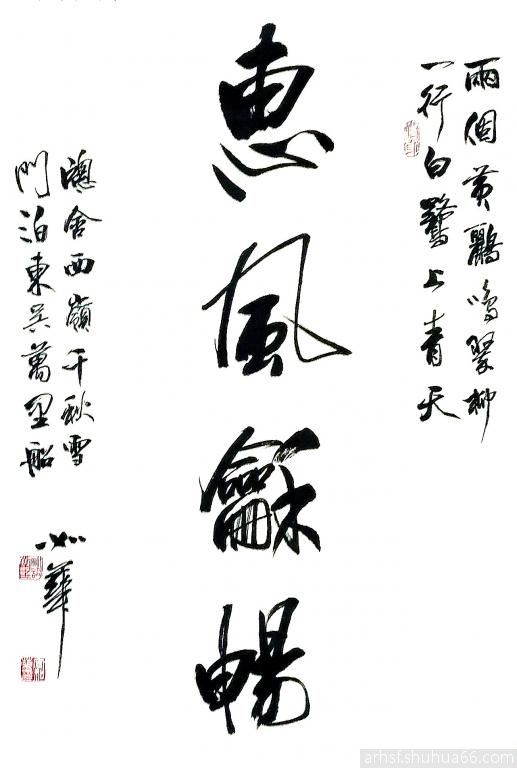 兩個黃鸝鳴翠柳
一行白鷺上青天
惠風龢暢
窻含西嶺千秋雪
門泊東吳萬里船
arhsf.shuhua66.com